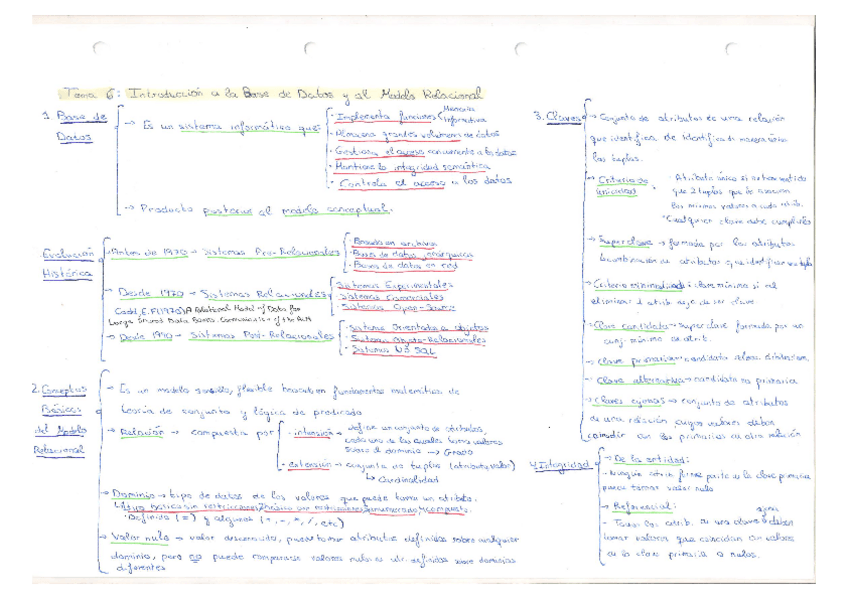 Tema 6: Introducción a la Base de Datos y al Modelo Relacional
1. Base de Datos
→ Es un sistema informático que:
- Implementa funciones
Memoria
Informativa
- Almacena grandes volúmenes de datos
- Gestiona el acceso concurrente a los datos
- Mantiene la integridad semántica
- Controla el acceso a los datos
→ Producto posterior al modelo conceptual.
Evolución Histórica
→ Antes de 1970 → Sistemas Pre-Relacionales
- Basada en archivos
- Bases de datos jerárquicas
- Bases de datos en red
→ Desde 1970 → Sistemas Relacionales
Sistemas Experimentales
Sistemas Comerciales
Sistemas Open-Source
Codd, E.F (1970) A Relational Model of Data for
Large Shared Data Banks. Communications of the ACM
→ Desde 1990 → Sistemas Post-Relacionales
- Sistemas Orientados a objetos
- Sistemas Objeto-Relacionales
- Sistemas No SQL
2. Conceptos Básicos del Modelo Relacional
→ Es un modelo sencillo, flexible basado en fundamentos matemáticos de
teoría de conjuntos y lógica de predicados
→ Relación → compuesta por
- intensión → define un conjunto de atributos,
cada uno de los cuales toma valores
sobre el dominio → Grado
- extensión → conjunto de tuplas (atributo, valor)
↳ Cardinalidad
→ Dominio → tipo de datos de los valores que puede tomar un atributo.
básico sin restricciones
compuesto
Definido (=) y algunos (+, -, *, /, etc)
→ Valor nulo → valor desconocido, pueden tomar atributos definidos sobre cualquier
dominio, pero no puede compararse valores nulos definidos sobre dominios
diferentes
3. Claves
→ Conjunto de atributos de una relación
que identifica
las tuplas.
→ Criterio de unicidad:
Atributo único
que 2 tuplas que se asocien
los mismos valores a cada atrib.
*Cualquier clave debe cumplirlo
→ Superclave → formada por los atributos
la combinación de atributos que identifican
→ Criterio minimalidad: clave mínima si al
eliminar 1 atrib deja de ser clave
→ Clave candidata → superclave formada por un
conj. mínimo de atrib.
→ Clave primaria → candidata
→ Clave alternativa → candidata no primaria
→ Claves ajenas → conjunto de atributos
de una relación cuyos valores deben
coincidir con los primarios de otra relación
4. Integridad
→ De la entidad:
- Ningún atrib. forma parte de la clave primaria
puede tomar valor nulo
→ Referencial:
- Todos los atrib. de una clave ajena deben
tomar valores que coincidan con valores
de la clave primaria o nulos.